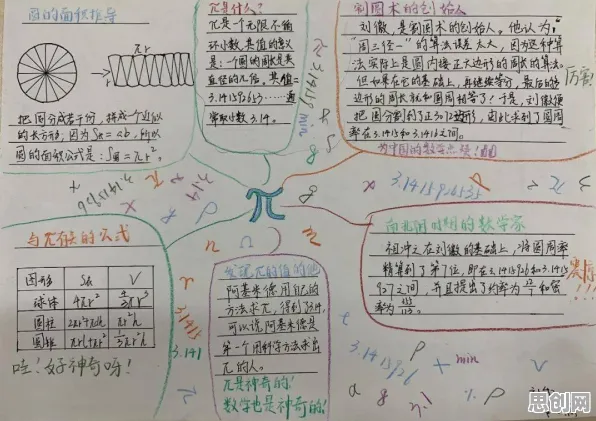 圆的面积推导
πr
r
把圆分成若干份，拼成一个近似
的长方形，因为S长=ab，所以
圆的面积公式是：S圆=πr²。
π是什么？
π是一个无限不循
环小数，其值的含义
是：一个圆的周长是其
直径的几倍，其值=
3.141592653……通
常取小数3.14。
割圆术的创始人
刘徽，是割圆术的创始人。他认为，
"周三径一"的算法误差太大，因为这种算
法实际上是圆内接正六边形的周长的算法。
但如果在它的基础上，再继续等分，最后的多
边形的周长就和圆周相等了！于是，刘徽便
把圆分割到了正3072边形，由此求到了圆周
率在3.1415和3.1416之间。
为中国的数学点赞！
厉害！
3.1415919
π
3.14
3.1415926
3.1415926535
与π有关的公式
图形 S表 V
球体 4πr² 4/3πr³
圆柱 2πr²+πdh πr²h
圆锥 πrl+πr² 1/3πr²h
哇！好神奇呀！
3.1415
3.141
阿基米德用自己的
方法求π，得到了3.14，
可以说阿基米德是
第一个用科学方法求出
π的人。
π是神奇的！
数学也是神奇的！
南北朝时期的数学家
祖冲之在刘徽的基础上，将圆周率
精算到了第7位，即在3.1415926和3.1415
927之间，并且提出了约率为22/7和密
率为355/113。
3.1415926
min
min
思创网